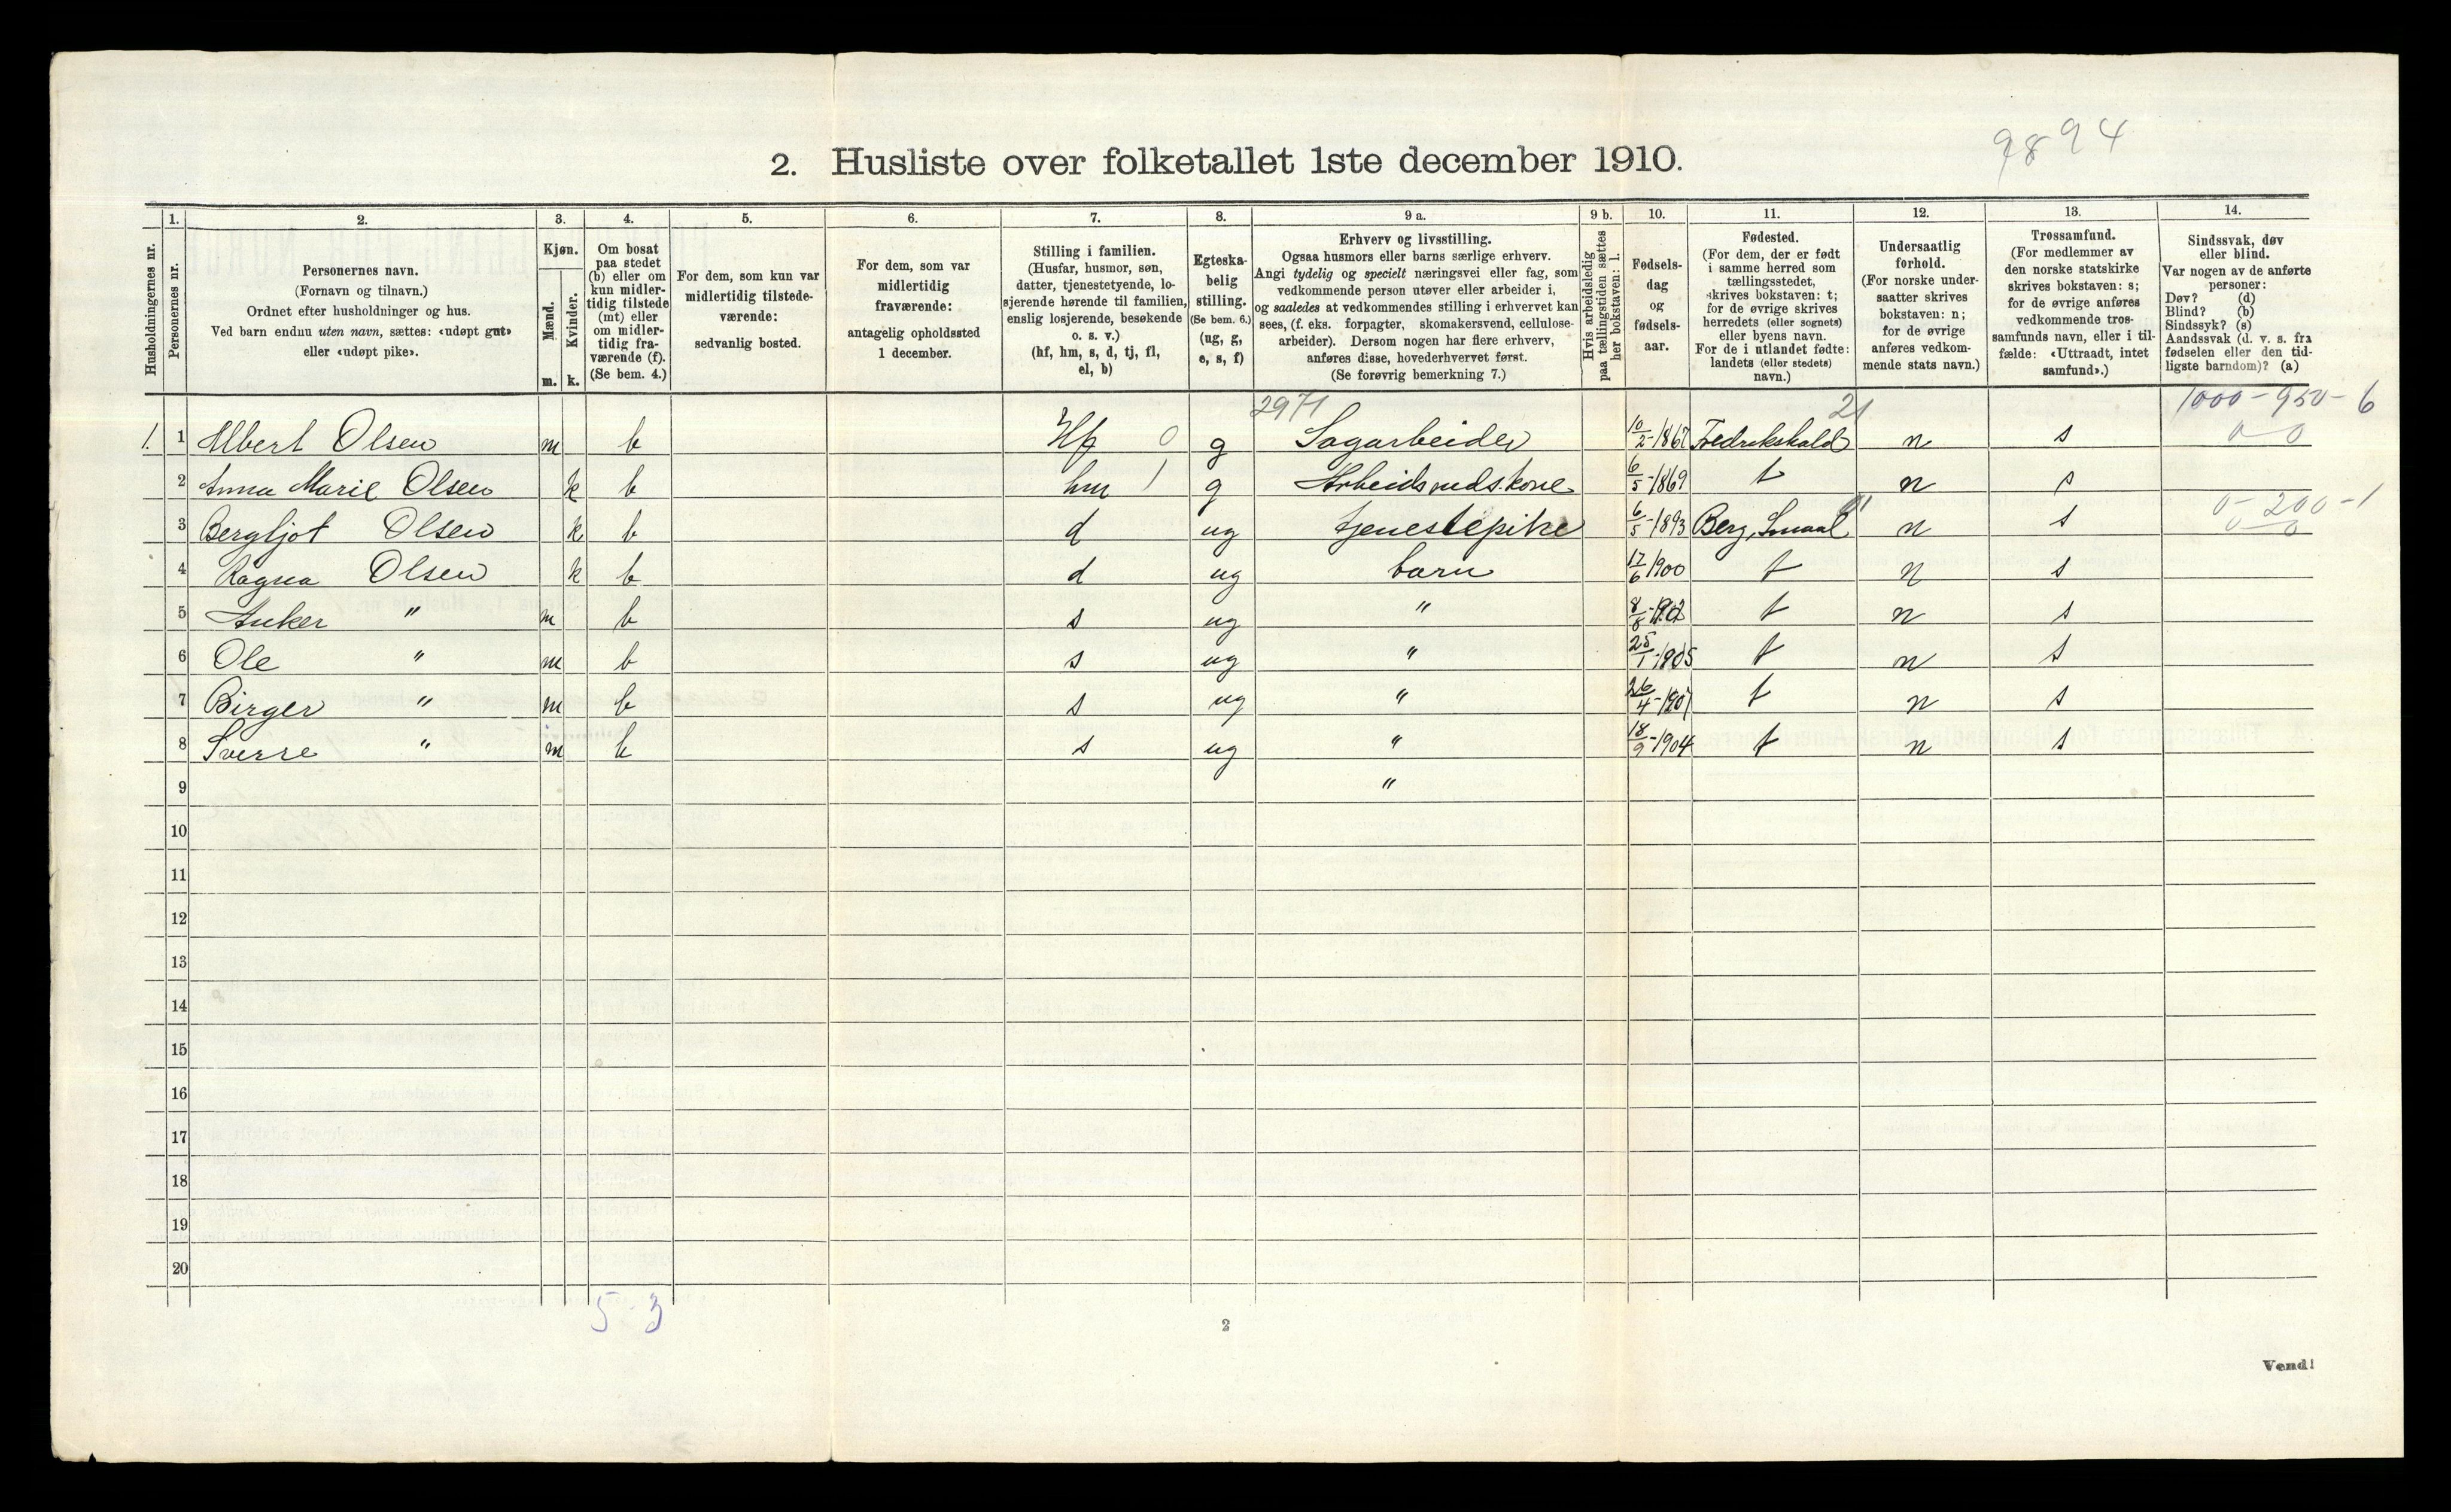 9894
2. Husliste over folketallet 1ste december 1910.
Husholdningernes nr.
1.
Personernes nr.
2.
Personernes navn.
(Fornavn og tilnavn.)
Ordnet efter husholdninger og hus.
Ved barn endnu uten navn, sættes: «udøpt gut»
eller «udøpt pike».
3.
Kjøn.
Mænd.
Kvinder.
m. k.
4.
Om bosat
paa stedet
(b) eller om
kun midler-
tidig tilstede
(mt) eller
om midler-
tidig fra-
værende (f).
(Se bem. 4.)
5.
For dem, som kun var
midlertidig tilstede-
værende:
sedvanlig bosted.
6.
For dem, som var
midlertidig
fraværende:
antagelig opholdssted
1 december.
7.
Stilling i familien.
(Husfar, husmor, søn,
datter, tjenestetyende, lo-
sjerende hørende til familien,
enslig losjerende, besøkende
o. s. v.)
(hf, hm, s, d, tj, fl,
el, b)
8.
Egteska-
belig
stilling.
(Se bem. 6.)
(ug, g,
e, s, f)
9 a.
Erhverv og livsstilling.
Ogsaa husmors eller barns særlige erhverv.
Angi tydelig og specielt næringsvei eller fag, som
vedkommende person utøver eller arbeider i,
og saaledes at vedkommendes stilling i erhvervet kan
sees, (f. eks. forpagter, skomakersvend, cellulose-
arbeider). Dersom nogen har flere erhverv,
anføres disse, hovederhvervet først.
(Se forøvrig bemerkning 7.)
9 b.
Hvis arbeidsledig
paa tællingstiden sættes
her bokstaven: l.
10.
Fødsels-
dag
og
fødsels-
aar.
11.
Fødested.
(For dem, der er født
i samme herred som
tællingsstedet,
skrives bokstaven: t;
for de øvrige skrives
herredets (eller sognets)
eller byens navn.
For de i utlandet fødte:
landets (eller stedets)
navn.)
12.
Undersaatlig
forhold.
(For norske under-
saatter skrives
bokstaven: n;
for de øvrige
anføres vedkom-
mende stats navn.)
13.
Trossamfund.
(For medlemmer av
den norske statskirke
skrives bokstaven: s;
for de øvrige anføres
vedkommende tros-
samfunds navn, eller i til-
fælde: «Uttraadt, intet
samfund».)
14.
Sindssvak, døv
eller blind.
Var nogen av de anførte
personer:
Døv? (d)
Blind? (b)
Sindssyk? (s)
Aandssvak (d. v. s. fra
fødselen eller den tid-
ligste barndom)? (a)
2971 21 1000-950-6
1. 1 Albert Olsen m b Hf 0 g Sagarbeider 10/2-1867 Fredrikshald n s 0-0
2 Anna Marie Olsen k b hm 1 g Arbeidsmdskone 6/5-1869 t n s
0-200-1
3 Bergljot Olsen k b d ug tjenestepike 6/5-1893 Berg, Smaal. n s 0-0
4 Ragna Olsen k b d ug barn 17/6 1900 t n s
5 Anker " m b s ug " 8/8-1902 t n s
6 Ole " m b s ug " 25/1-1905 t n s
7 Birger " m b s ug " 26/4-1907 t n s
8 Sverre " m b s ug " 18/9-1904 t n s
9 "
10
11
12
13
14
15
16
17
18
19
20
5-3
2
Vend!